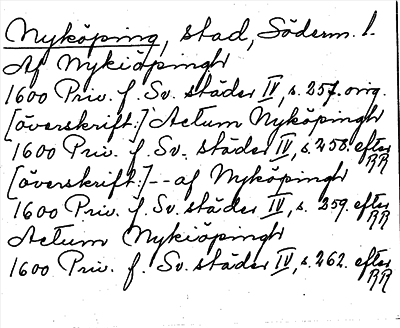 Nyköping, stad, Söderm. l.
Af Nykiöpingh
1600 Priv. f. Sv. städer IV, s. 257. orig.
[överskrift:] Actum Nyköpingh
1600 Priv. f. Sv. städer IV, s. 258. efter RR
[överskrift:] -- af Nyköpingh
1600 Priv. f. Sv. städer IV, s. 259. efter RR
Actum Nykiöpingh
1600 Priv. f. Sv. städer IV, s. 262. efter RR